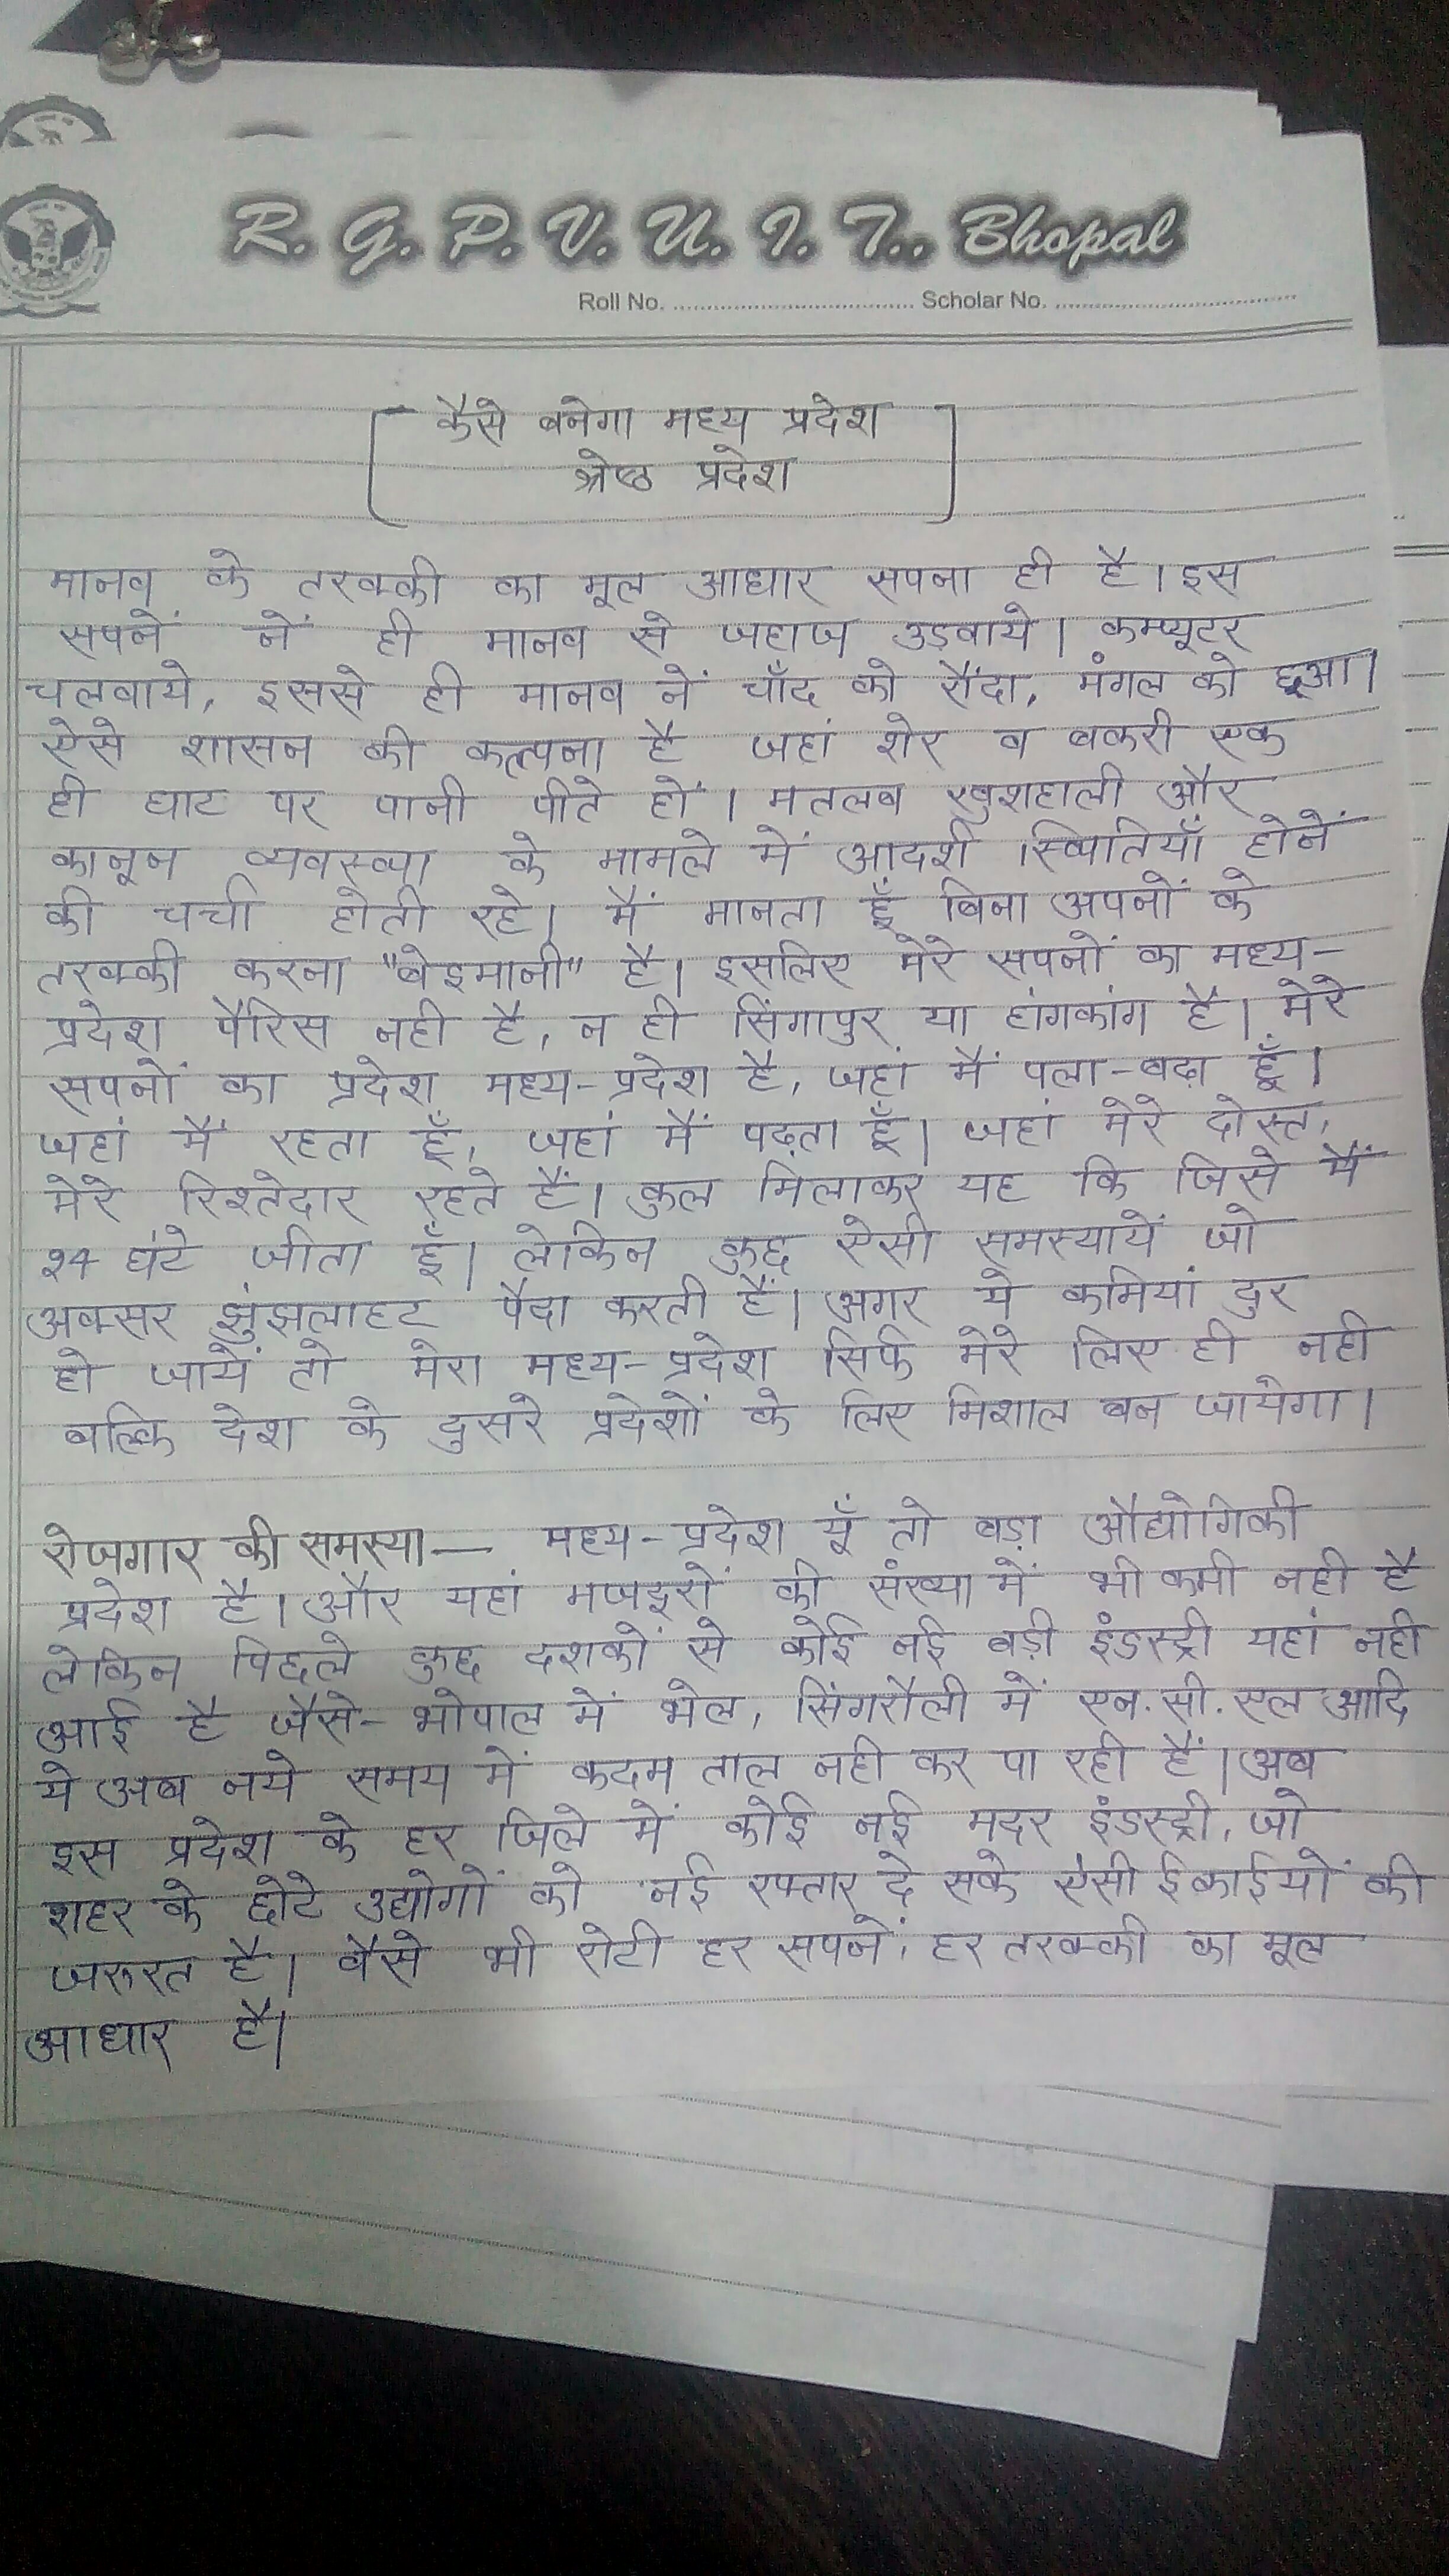 R. G. P. V. U. I. T., Bhopal
Roll No. .................................... Scholar No. ....................................
कैसे बनेगा मध्य प्रदेश
श्रेष्ठ प्रदेश
मानव के तरक्की का मूल आधार सपना ही है। इस
सपनें नें ही मानव से जहाज उड़वाये। कम्प्यूटर
चलवाये, इससे ही मानव नें चाँद को रौंदा, मंगल को छूआ।
ऐसे शासन की कल्पना है जहां शेर व बकरी एक
ही घाट पर पानी पीते हों। मतलब खुशहाली और
कानून व्यवस्था के मामले में आदर्श स्थितियाँ होनें
की चर्चा होती रहे। मैं मानता हूँ बिना अपनों के
तरक्की करना "बेइमानी" है। इसलिए मेरे सपनों का मध्य-
प्रदेश पैरिस नही है, न ही सिंगापुर या हांगकांग है। मेरे
सपनों का प्रदेश मध्य-प्रदेश है, जहां मैं पला-बढ़ा हूँ।
जहां मैं रहता हूँ, जहां मैं पढ़ता हूँ। जहां मेरे दोस्त,
मेरे रिश्तेदार रहते हैं। कुल मिलाकर यह कि जिसे मैं
24 घंटे जीता हूँ। लेकिन कुछ ऐसी समस्यायें जो
अक्सर झुंझलाहट पैदा करती हैं। अगर ये कमियां दुर
हो जायें तो मेरा मध्य-प्रदेश सिर्फ मेरे लिए ही नही
बल्कि देश के दुसरे प्रदेशों के लिए मिशाल बन जायेगा।
रोजगार की समस्या— मध्य-प्रदेश यूँ तो बड़ा औद्योगिकी
प्रदेश है। और यहां मजदूरों की संख्या में भी कमी नही है
लेकिन पिछले कुछ दशकों से कोई नई बड़ी इंडस्ट्री यहां नही
आई है जैसे- भोपाल में भेल, सिंगरौली में एन.सी.एल आदि
ये अब नये समय में कदम ताल नही कर पा रही हैं। अब
इस प्रदेश के हर जिले में कोई नई मदर इंडस्ट्री, जो
शहर के छोटे उद्योगों को नई रफ्तार दे सके ऐसी ईकाईयों की
जरुरत है। वैसे भी रोटी हर सपनें, हर तरक्की का मूल
आधार है।